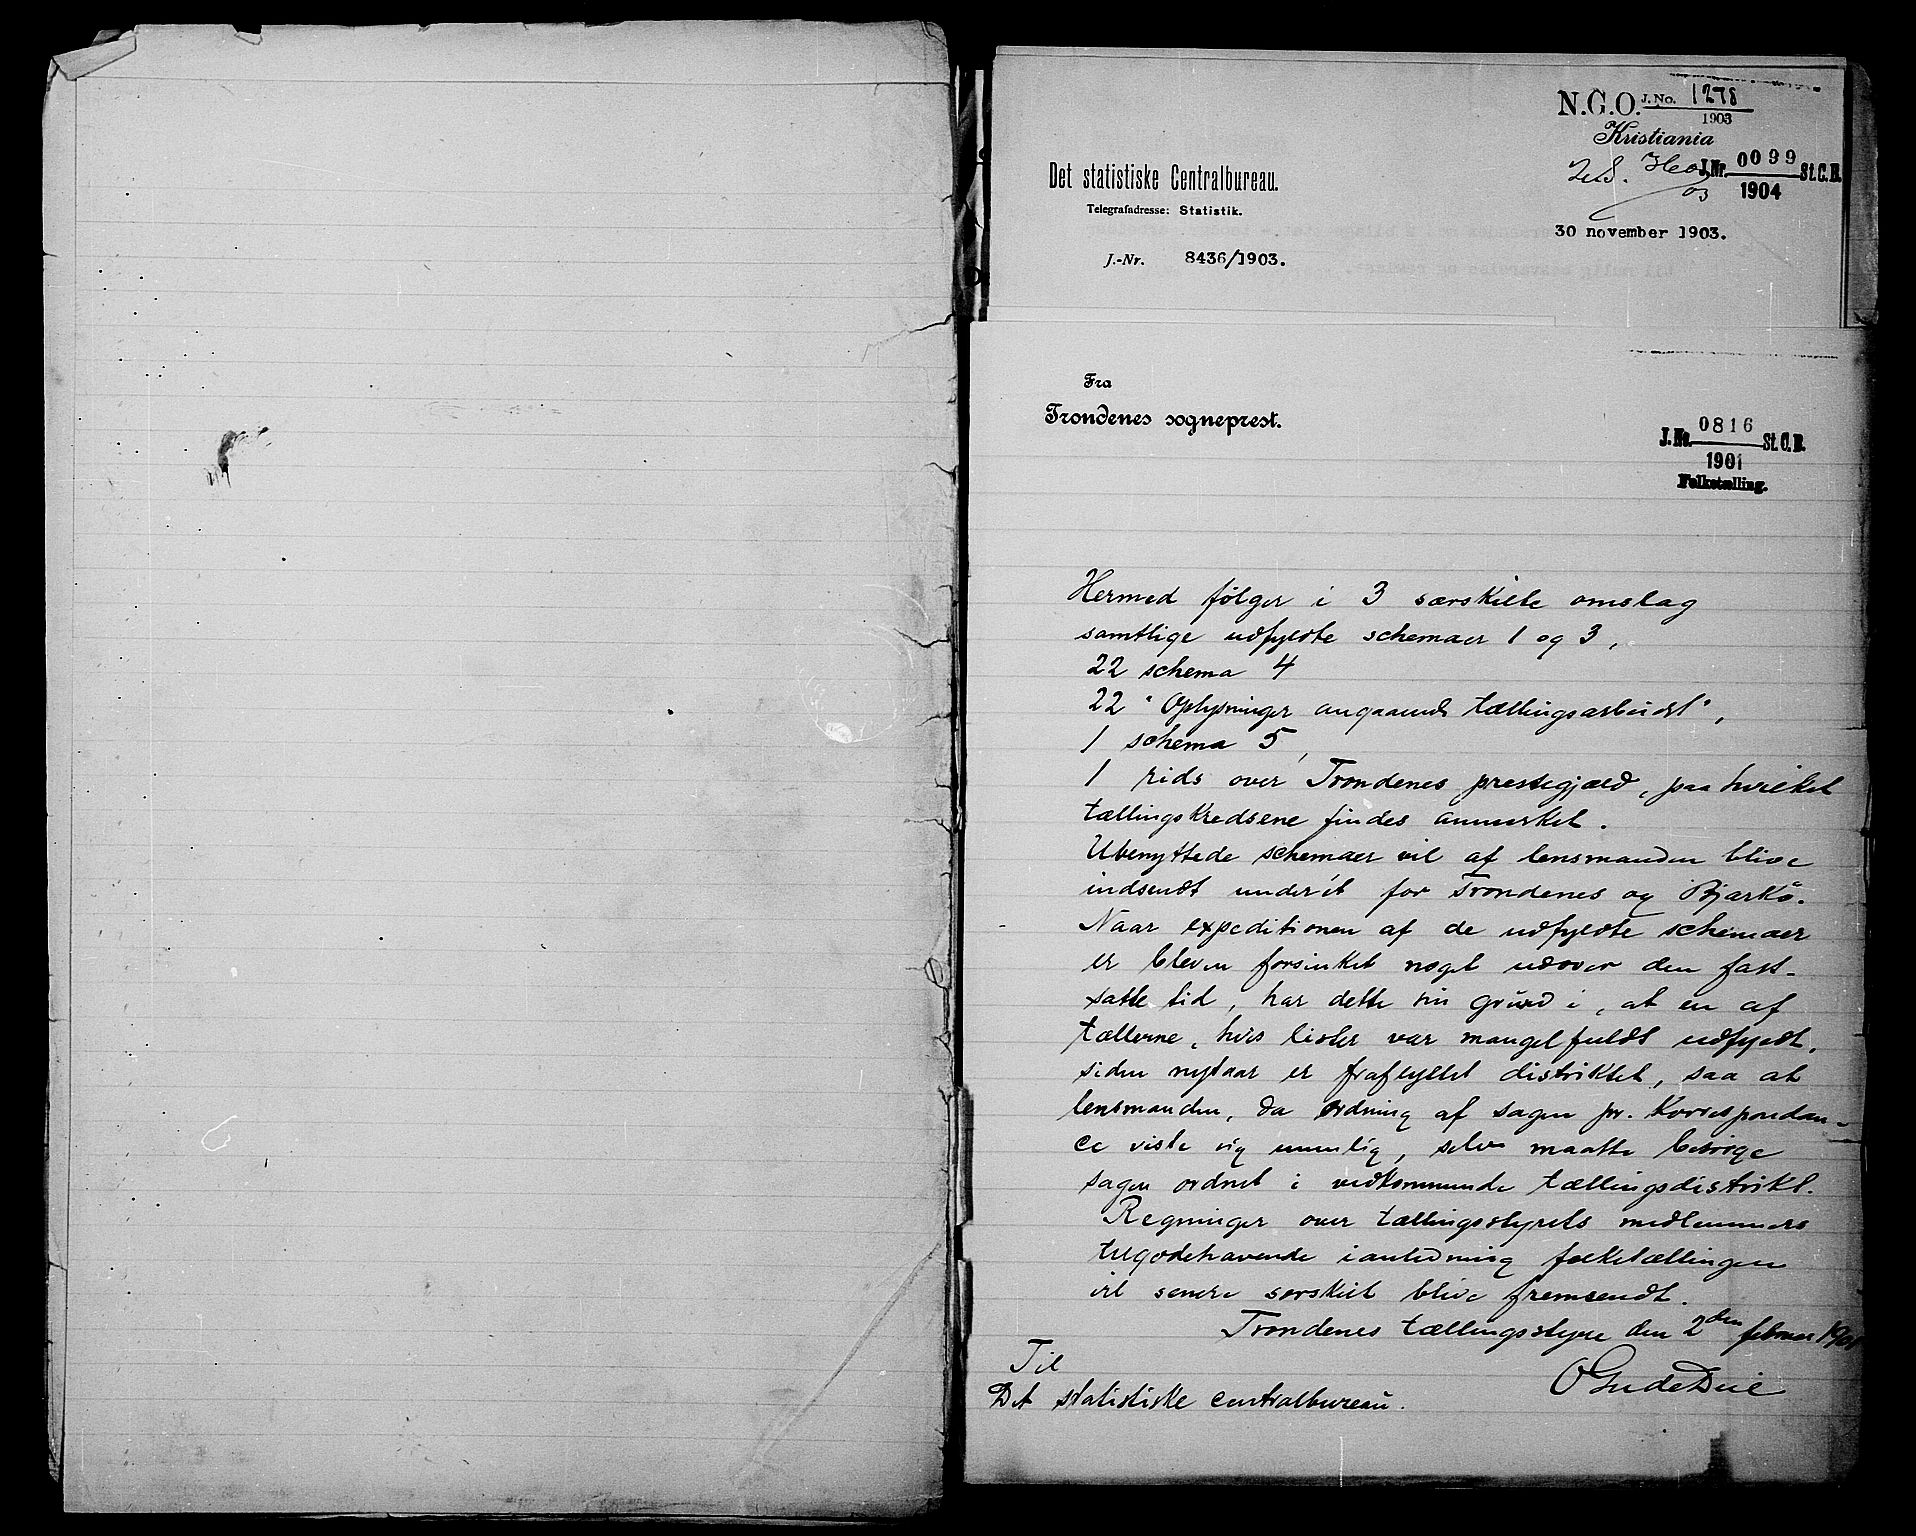 N.G.O. J. No. 1278
1903
Kristiania
J.Nr. 0099 St.C.B.
03 1904
Det statistiske Centralbureau.
Telegrafadresse: Statistik.
30 november 1903.
J.-Nr. 8436/1903.
Fra
Trondenes sogneprest.
J.No. 0816 St.C.B.
1901
Folketælling.
Hermed følger i 3 særskilte omslag
samtlige udfyldte schemaer 1 og 3,
22 schema 4
22 "Oplysninger angaaende tællingsarbeidet",
1 schema 5,
1 rids over Trondenes prestegjæld, paa hvilket
tællingskredsene findes anmerket.
Ubenyttede schemaer vil af lensmanden blive
indsendt under ét for Trondenes og Bjarkö.
Naar expeditionen af de udfyldte schemaer
er bleven forsinket noget udover den fast-
satte tid, har dette sin grund i, at en af
tællerne, hvis lister var mangelfuldt udfyldt,
siden nytaar er fraflyttet distriktet, saa at
lensmanden, da ordning af sagen pr. Korrespondan-
ce viste sig umulig, selv maatte besørge
sagen ordnet i vedkommende tællingsdistrikt.
Regninger over tællingsstyrets medlemmers
tilgodehavende i anledning folketællingen
vil senere særskilt blive fremsendt.
Trondenes tællingsstyre den 2den februar 1901
Til
Det statistiske centralbureau.